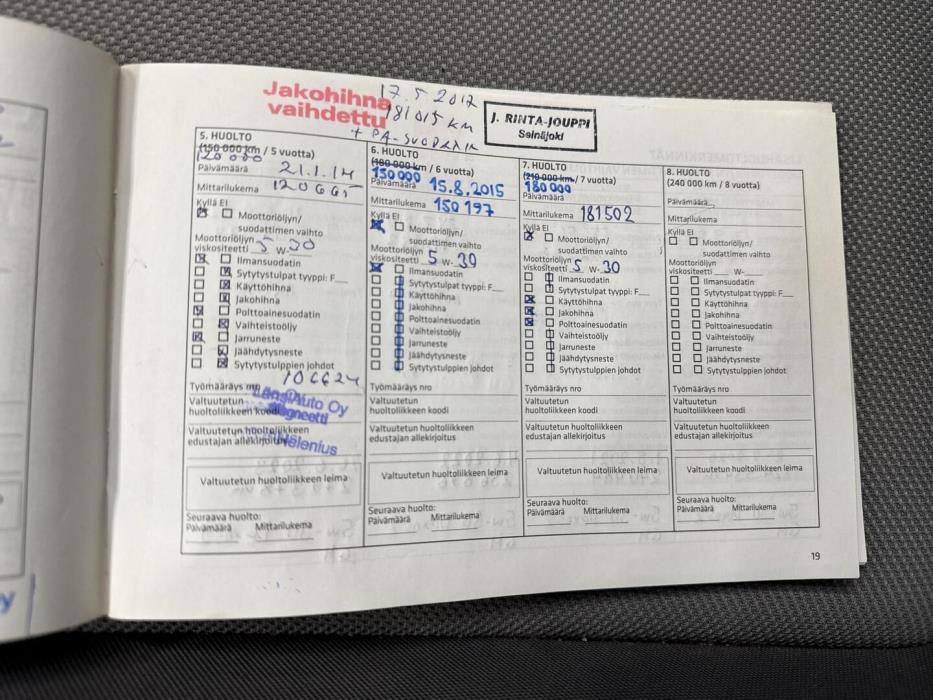 Jakohihna
vaihdettu
17.5 2017
181015 KM
+ PA-SUODATIN
J. RINTA-JOUPPI
Seinäjoki
5. HUOLTO
(150 000 km / 5 vuotta)
120 000
Päivämäärä 21.1.14
Mittarilukema 120665
Kyllä Ei
Moottoriöljyn/
suodattimen vaihto
Moottoriöljyn
viskositeetti 5 W- 30
Ilmansuodatin
Sytytystulpat tyyppi: F
Käyttöhihna
Jakohihna
Polttoainesuodatin
Vaihteistoöljy
Jarruneste
Jäähdytysneste
Sytytystulppien johdot
Työmääräys nro 106624
Valtuutetun
huoltoliikkeen koodi
Valtuutetun huoltoliikkeen
edustajan allekirjoitus
LänsiAuto Oy
Magneetti
Helenius
Valtuutetun huoltoliikkeen leima
Seuraava huolto:
Päivämäärä Mittarilukema
6. HUOLTO
(180 000 km / 6 vuotta)
150 000
Päivämäärä 15.8.2015
Mittarilukema 150 197
Kyllä Ei
Moottoriöljyn/
suodattimen vaihto
Moottoriöljyn
viskositeetti 5 W- 30
Ilmansuodatin
Sytytystulpat tyyppi: F
Käyttöhihna
Jakohihna
Polttoainesuodatin
Vaihteistoöljy
Jarruneste
Jäähdytysneste
Sytytystulppien johdot
Työmääräys nro
Valtuutetun
huoltoliikkeen koodi
Valtuutetun huoltoliikkeen
edustajan allekirjoitus
Valtuutetun huoltoliikkeen leima
Seuraava huolto:
Päivämäärä Mittarilukema
7. HUOLTO
(210 000 km / 7 vuotta)
180 000
Päivämäärä
Mittarilukema 181502
Kyllä Ei
Moottoriöljyn/
suodattimen vaihto
Moottoriöljyn
viskositeetti 5 W- 30
Ilmansuodatin
Sytytystulpat tyyppi: F
Käyttöhihna
Jakohihna
Polttoainesuodatin
Vaihteistoöljy
Jarruneste
Jäähdytysneste
Sytytystulppien johdot
Työmääräys nro
Valtuutetun
huoltoliikkeen koodi
Valtuutetun huoltoliikkeen
edustajan allekirjoitus
Valtuutetun huoltoliikkeen leima
Seuraava huolto:
Päivämäärä Mittarilukema
8. HUOLTO
(240 000 km / 8 vuotta)
Päivämäärä
Mittarilukema
Kyllä Ei
Moottoriöljyn/
suodattimen vaihto
Moottoriöljyn
viskositeetti W-
Ilmansuodatin
Sytytystulpat tyyppi: F
Käyttöhihna
Jakohihna
Polttoainesuodatin
Vaihteistoöljy
Jarruneste
Jäähdytysneste
Sytytystulppien johdot
Työmääräys nro
Valtuutetun
huoltoliikkeen koodi
Valtuutetun huoltoliikkeen
edustajan allekirjoitus
Valtuutetun huoltoliikkeen leima
Seuraava huolto:
Päivämäärä Mittarilukema
19